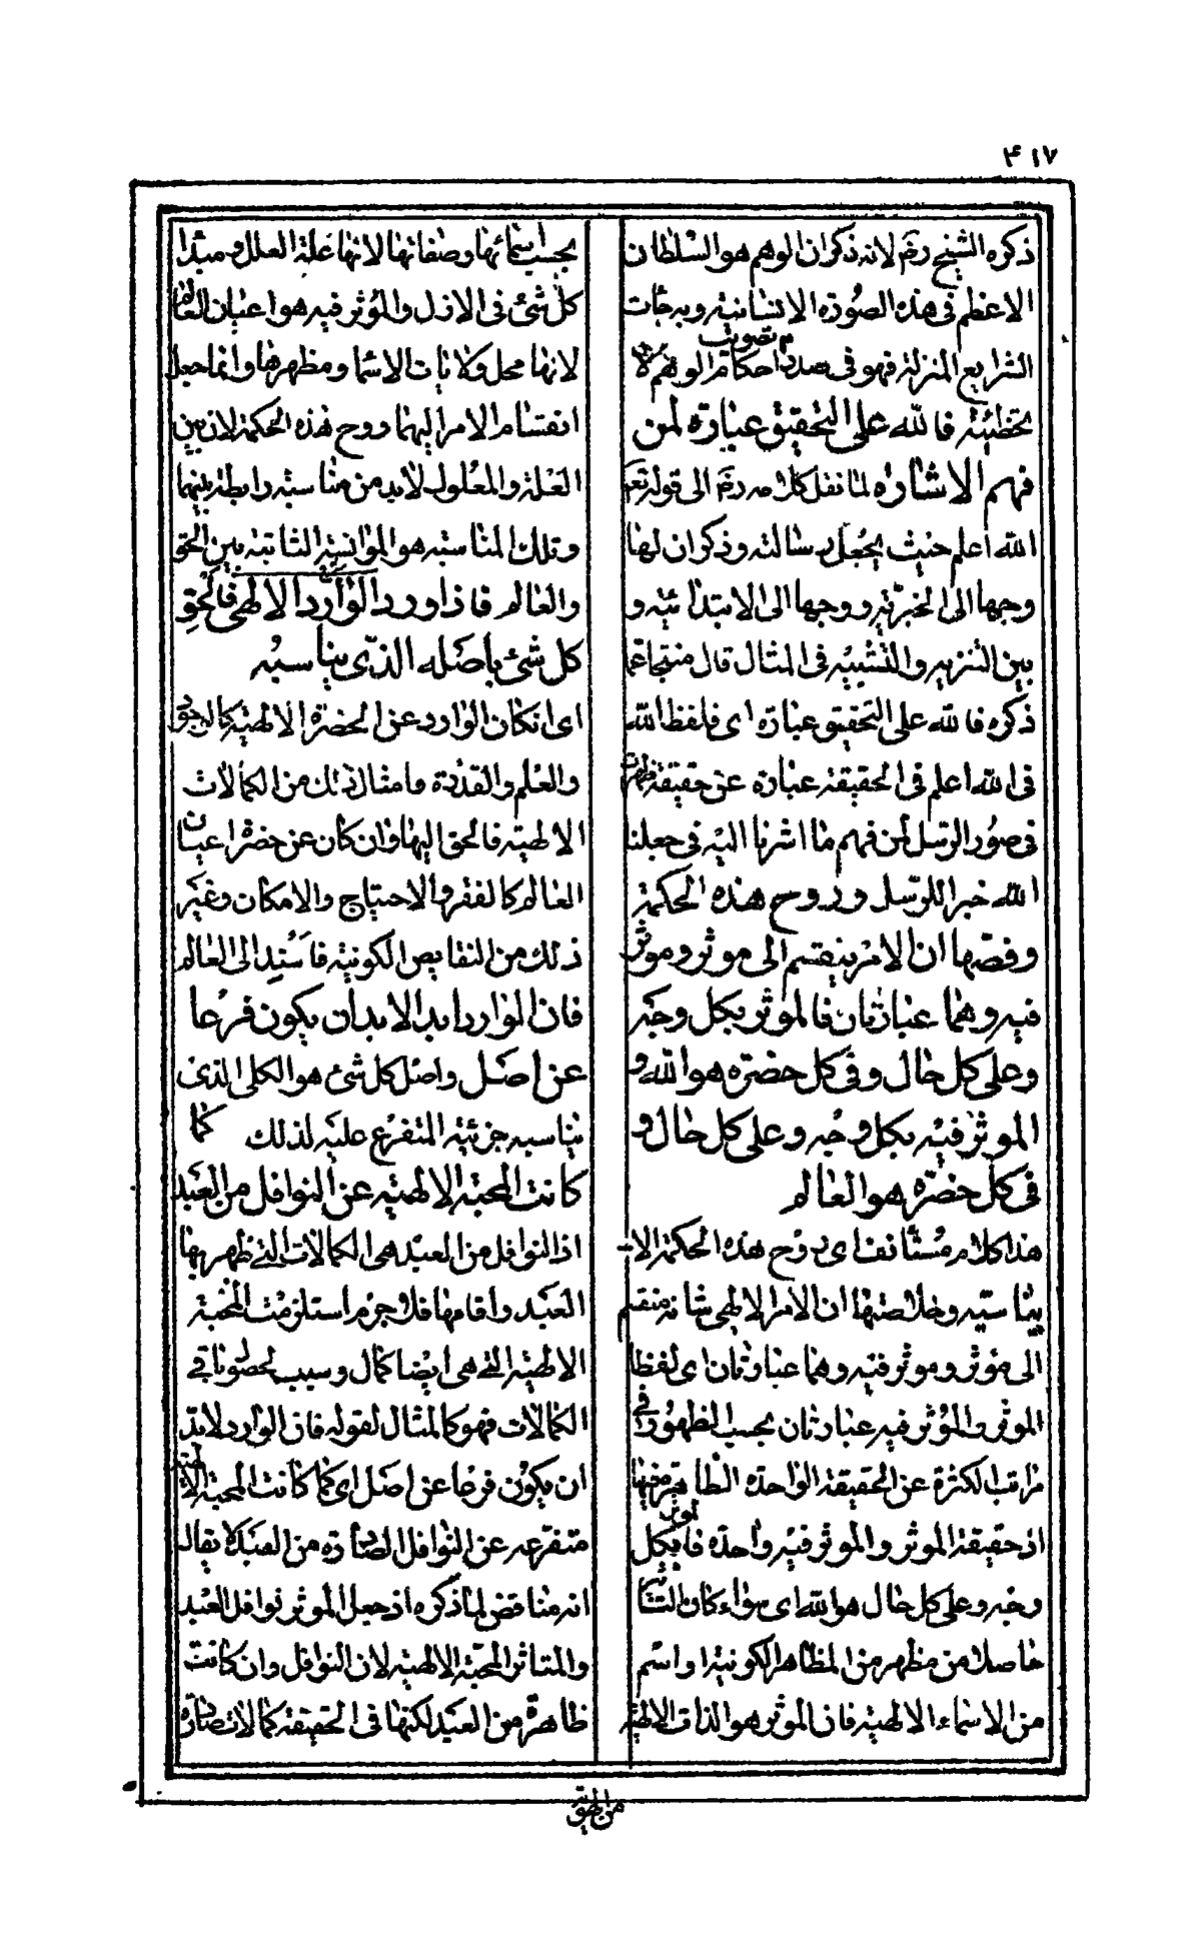 ٤١٧
ذكره الشيخ رض لانه ذكر ان الوهم هو السلطان
الاعظم فى هذه الصورة الانسانية وبه جاءت
الشرايع المنزلة فهو فى صدد تصويب احكام الوهم لا
تخطئته فالله على التحقيق عبارة لمن
فهم الاشارة لما نقل كلامه رض الى قوله تعم
الله اعلم حيث يجعل رسالته وذكر ان لها
وجها الى الخبرية ووجها الى الابتدائية و
بين التنزيه والتشبيه فى المثال قال منتجا عما
ذكره فالله على التحقيق عبارة اى فلفظ الله
فى الله اعلم فى الحقيقة عبارة عن حقيقة ظهرت
فى صور الرسل لمن فهم ما اشرنا اليه فى جعلنا
الله خبرا للرسل وروح هذه الحكمة
وفصها ان الامر ينقسم الى موثر وموثر
فيه وهما عبارتان فالموثر بكل وجه
وعلى كل حال وفى كل حضرة هو الله و
الموثر فيه بكل وجه وعلى كل حال و
فى كل حضرة هو العالم
هذا كلام مستأنف اى روح هذه الحكمة الا
يناسيه وخلاصتها ان الامر الالهى شانه منقسم
الى مؤثر وموثر فيه وهما عبارتان اى لفظا
الموثر والمؤثر فيه عبارتان بحسب الظهور فى
مراتب الكثرة عن الحقيقة الواحدة الظاهرة فيها
اذ حقيقة الموثر والموثر فيه واحدة فالموثر بكل
وجه وعلى كل حال هو الله اى سواء كان التأثير
حاصلا من مظهر من المظاهر الكونية او اسم
من الاسماء الالهية فان الموثر هو الذات الالهية
بحسب اسمائها وصفاتها لانها علة العلل ومبدأ
كل شئ فى الازل والمؤثر فيه هو اعيان العالم
لانها محل ولايات الاسما ومظهرها وانما جعل
انقسام الامر اليهما روح هذه الحكمة لان بين
العلة والمعلول لابد من مناسبة رابطة بينهما
وتلك المناسبه هو الموانسة الثابتة بين الحق
والعالم فاذا ورد الوارد الالهى فالحق
كل شئ باصله الذى يناسبه
اى ان كان الوارد عن الحضرة الالهية كالوجود
والعلم والقدرة وامثال ذلك من الكمالات
الالهية فالحق اليها وان كان عن حضرة اعيان
العالم كالفقر والاحتياج والامكان وغير
ذلك من النقايص الكونية فاسند الى العالم
فان الوارد ابد الابد ان يكون فرعا
عن اصل واصل كل شئ هو الكلى الذى
يناسبه جزئيه المتفرع عليه لذلك كما
كانت المحبة الالهية عن النوافل من العبد
اذ النوافل من العبد هى الكمالات التى ظهر بها
العبد واقامها فلا جرم استلزمت المحبة
الالهية التى هى ايضا كمال وسبب لحصول باقى
الكمالات فهو كالمثال لقوله فان الوارد لابد
ان يكون فرعا عن اصل اى كما كانت المحبة الالهية
متفرعه عن النوافل الصادرة من العبد لا يقال
انه مناقض لما ذكره اذ جعل الموثر نوافل العبد
والمتاثر المحبة الالهية لان النوافل وان كانت
ظاهرة من العبد لكنها فى الحقيقة كمالات صادرة
من الهوية